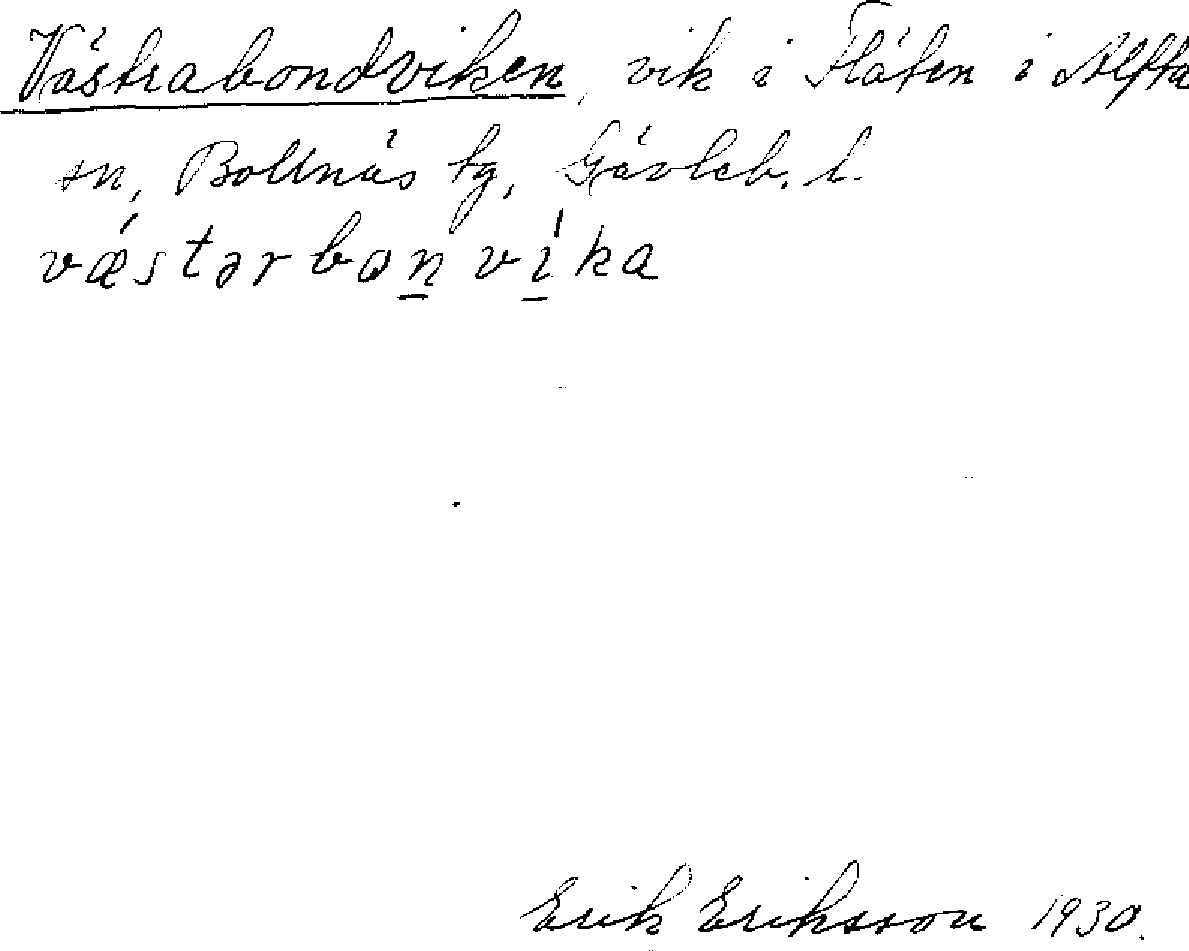 Västrabondviken, vik i Flåten i Alfta
sn, Bollnäs tg, Gävleb. l.
vǽstərbon̲ví̲ka
Erik Eriksson 1930.